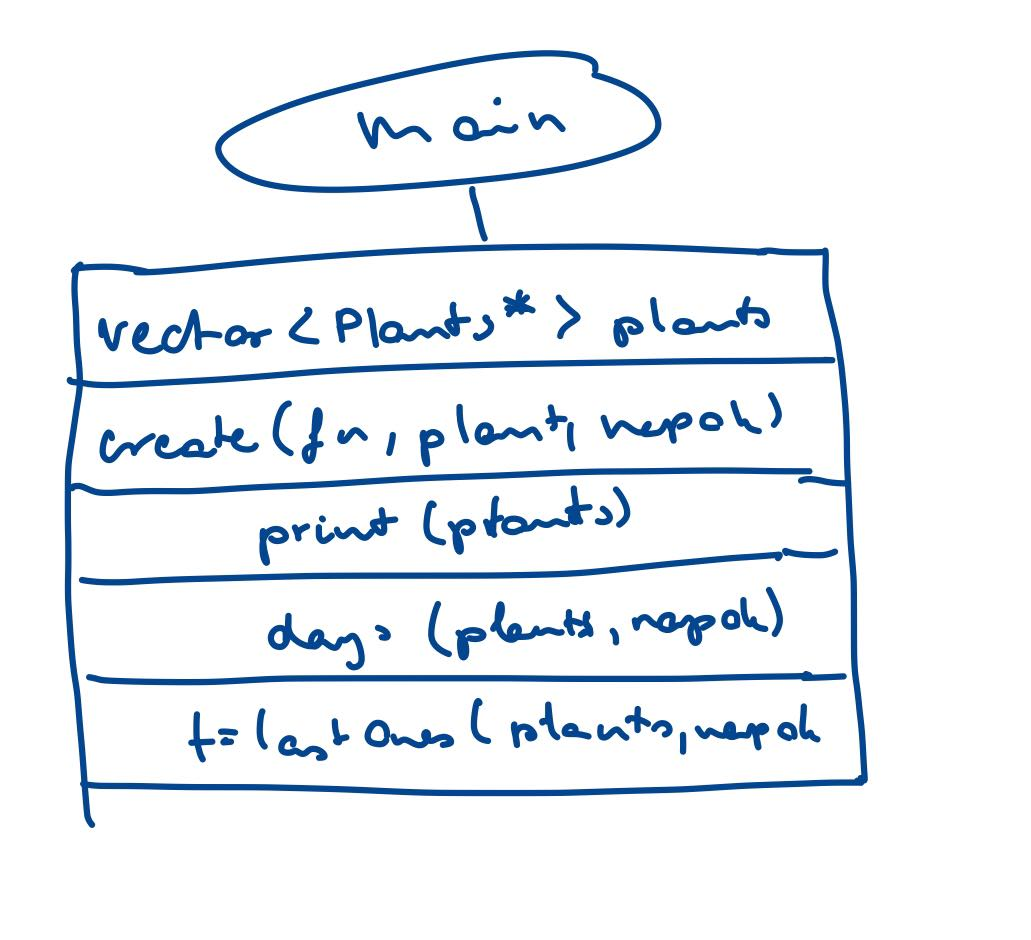 main
vector <Plants*> plants
create (fn, plant, napok)
print (plants)
days (plants, napok)
t = lastOnes (plants, napok